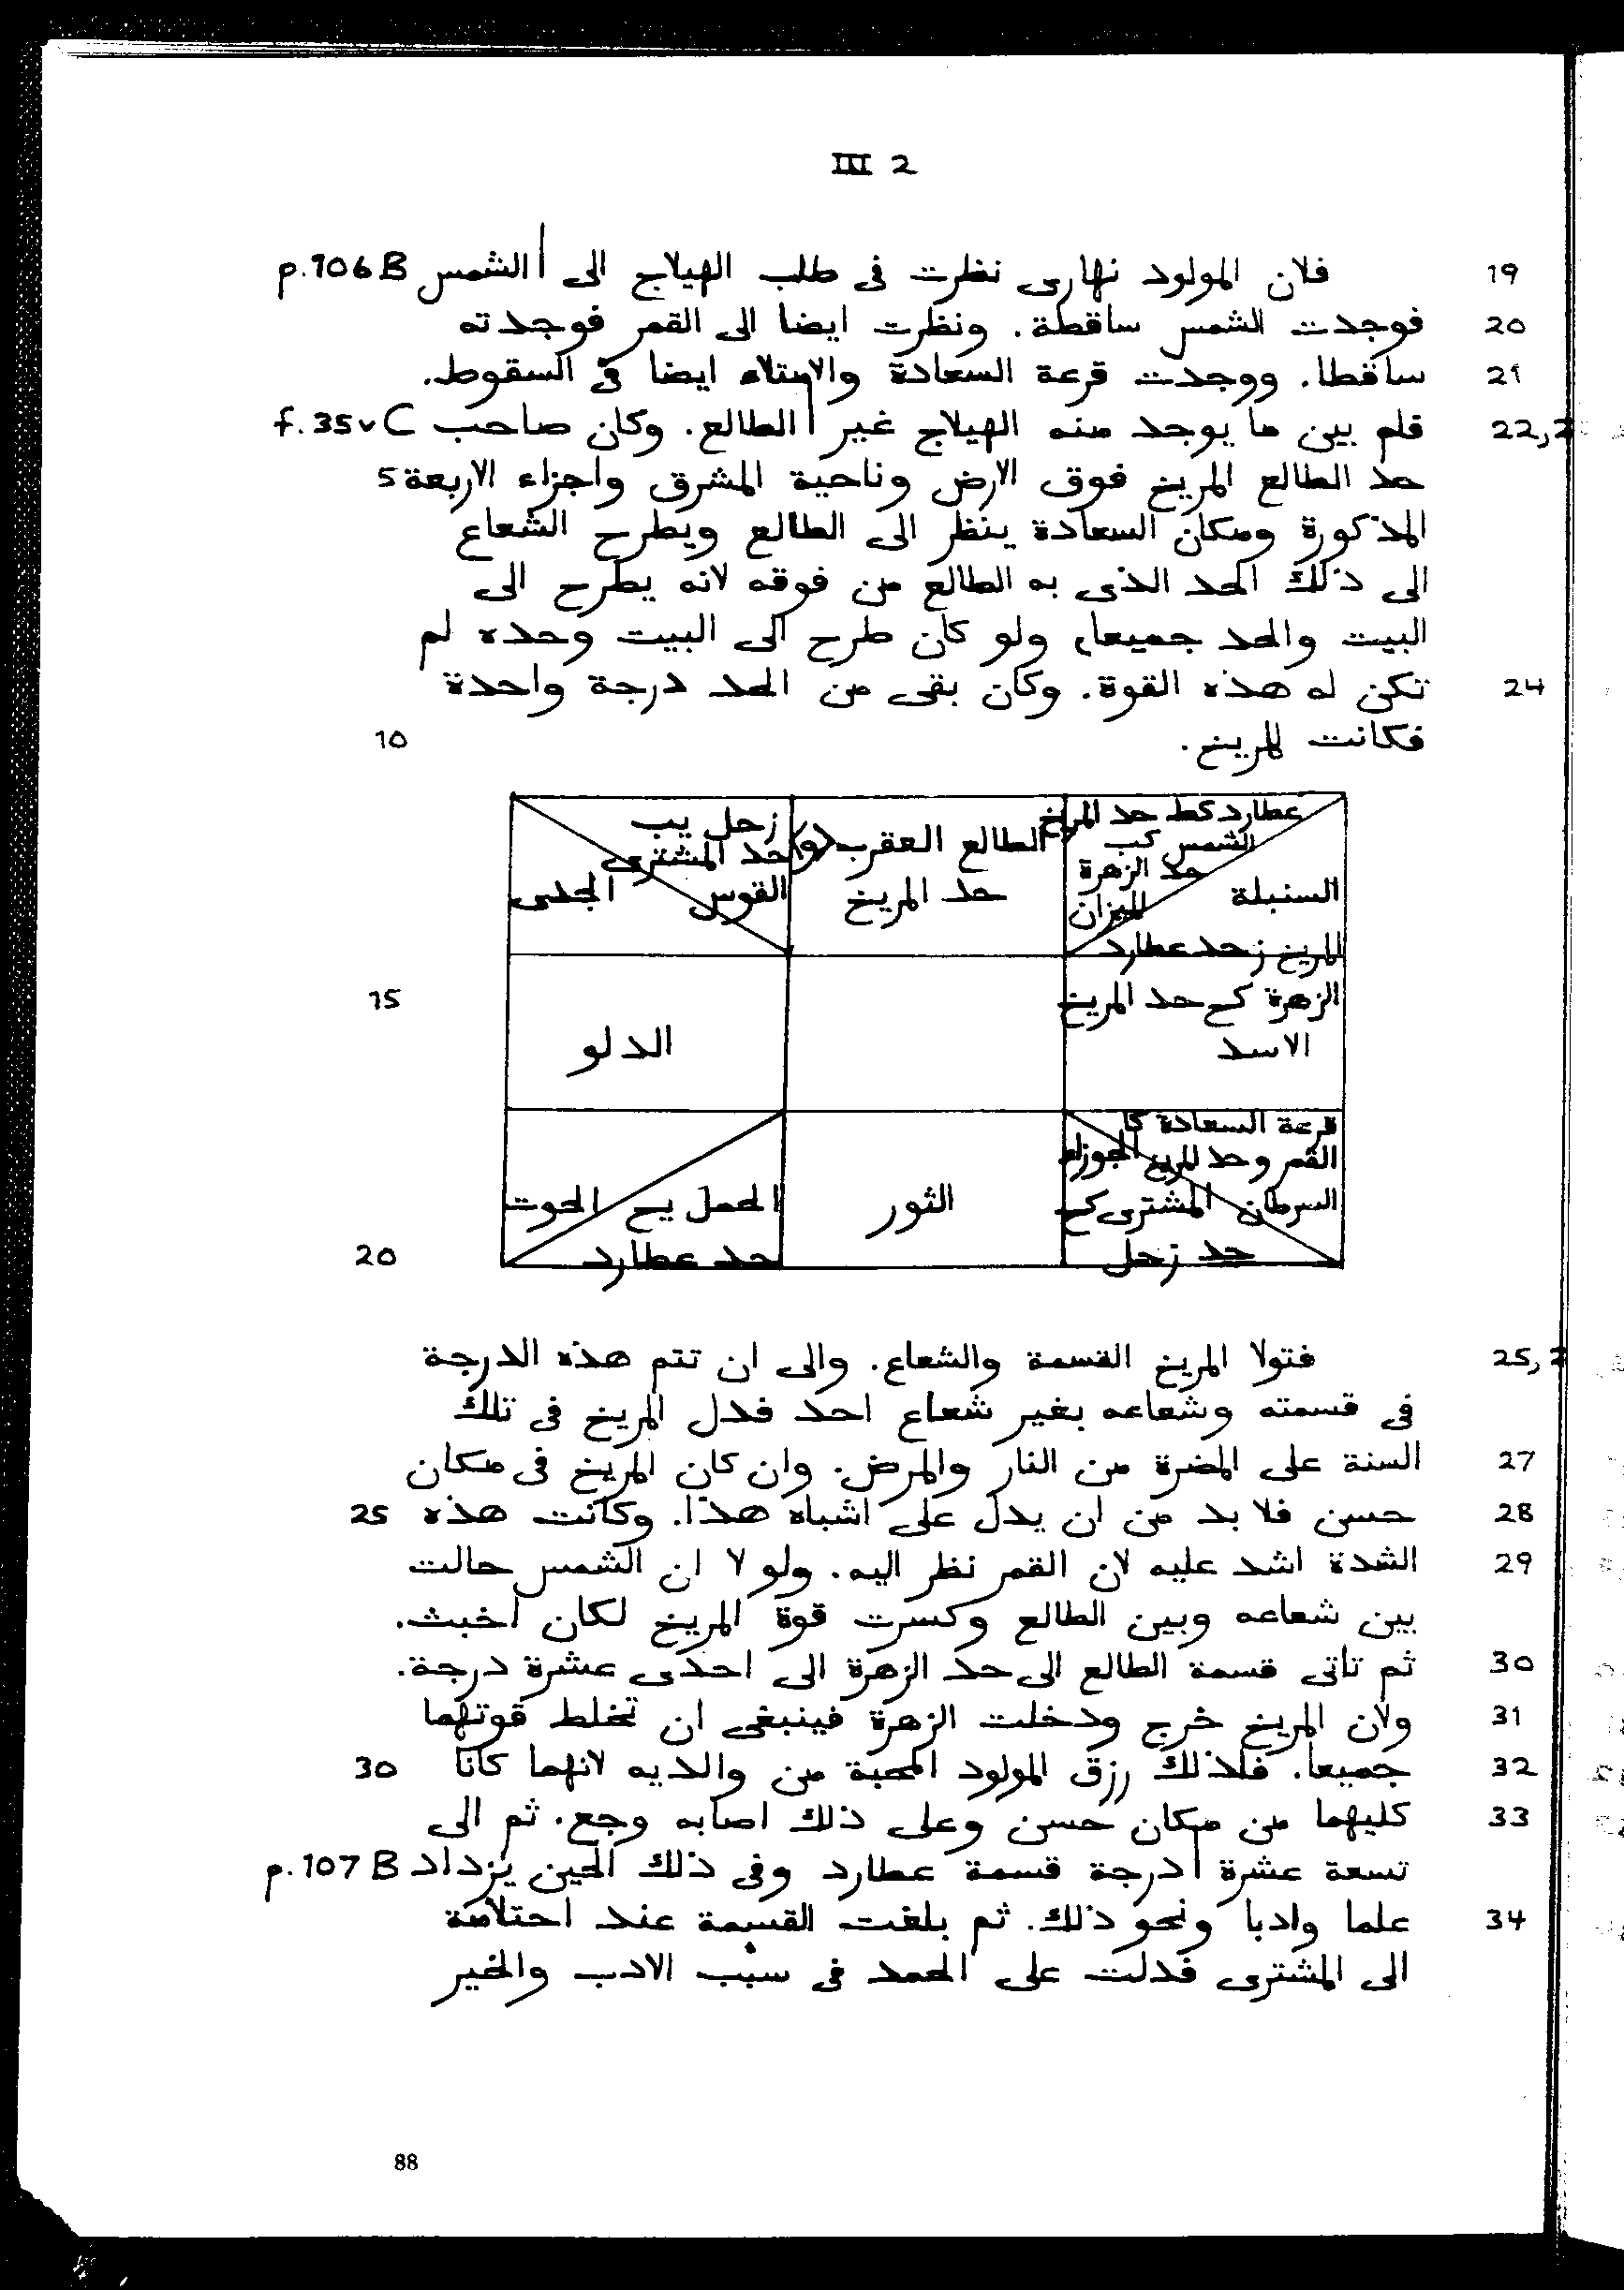 III 2
19 فلان المولود نهارى نظرت فى طلب الهيلاج الى |الشمس p.106 B
20 فوجدت الشمس ساقطة. ونظرت ايضا الى القمر فوجدته
21 ساقطا. ووجدت قرعة السعادة والامتلاء ايضا فى السقوط.
22,2 فلم يبن ما يوجد منه الهيلاج غير |الطالع. وكان صاحب f.35v C
حد الطالع المريخ فوق الارض وناحية المشرق واجزاء الاربعة 5
المذكورة ومكان السعادة ينظر الى الطالع ويطرح الشعاع
الى ذلك الحد الذى به الطالع من فوقه لانه يطرح الى
البيت والحد جميعا، ولو كان طرح الى البيت وحده لم
24 تكن له هذه القوة. وكان بقى من الحد درجة واحدة
فكانت للمريخ. 10
عطارد كط حد المريخ
الشمس كب
حد الزهرة
الميزان
السنبلة
الطالع العقرب <و>
حد المريخ
زحل يب
حد المشترى
القوس
الجدى
المريخ ز حد عطارد
الزهرة كح حد المريخ
الاسد
الدلو
15
قرعة السعادة كا
القمر و حد المريخ الجوزاء
السرطان المشترى كح
حد زحل
الثور
الحمل يح الحوت
حد عطارد
20
25,2 فتولا المريخ القسمة والشعاع. والى ان تتم هذه الدرجة
فى قسمته وشعاعه بغير شعاع احد فدل المريخ فى تلك
27 السنة على المضرة من النار والمرض. وان كان المريخ فى مكان
28 حسن فلا بد من ان يدل على اشباه هذا. وكانت هذه 25
29 الشدة اشد عليه لان القمر نظر اليه. ولو لا ان الشمس حالت
بين شعاعه وبين الطالع وكسرت قوة المريخ لكان اخبث.
30 ثم تاتى قسمة الطالع الى حد الزهرة الى احدى عشرة درجة.
31 ولان المريخ خرج ودخلت الزهرة فينبغى ان تخلط قوتهما
32 جميعا. فلذلك رزق المولود المحبة من والديه لانهما كانا 30
33 كليهما من مكان حسن وعلى ذلك اصابه وجع. ثم الى
تسعة عشرة |درجة قسمة عطارد وفى ذلك الحين يزداد p.107 B
34 علما وادبا ونحو ذلك. ثم بلغت القسمة عند احتلامة
الى المشترى فدلت على الحمد فى سبب الادب والخير
88